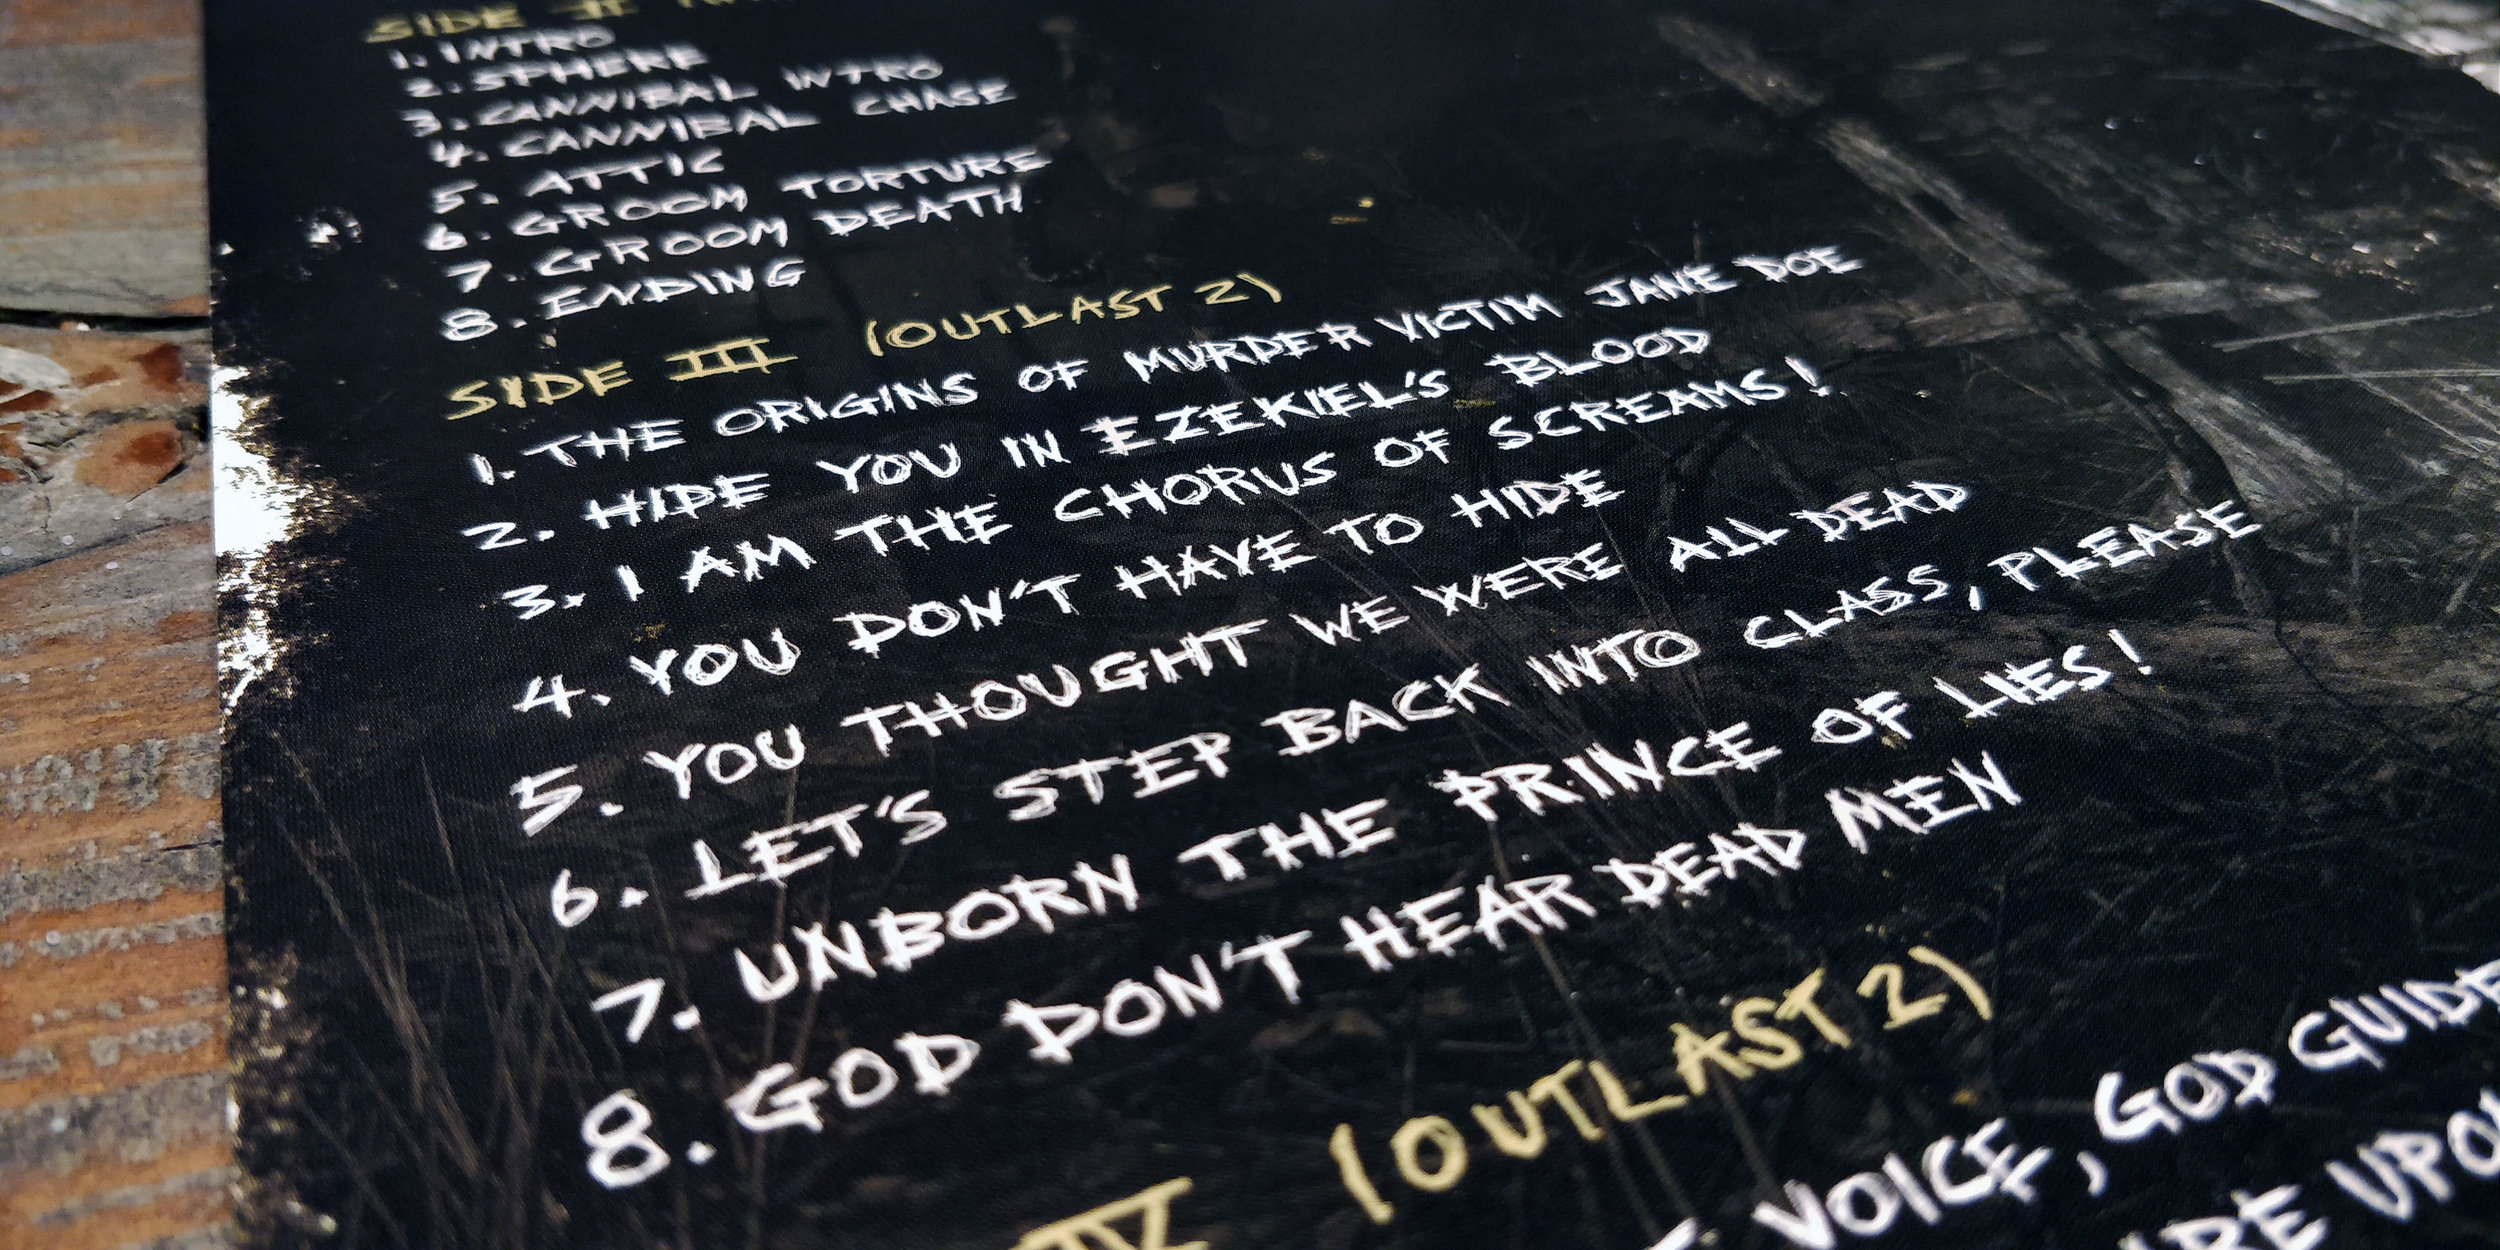 SIDE II
1. INTRO
2. SPHERE
3. CANNIBAL INTRO
4. CANNIBAL CHASE
5. ATTIC
6. GROOM TORTURE
7. GROOM DEATH
8. ENDING
SIDE III (OUTLAST 2)
1. THE ORIGINS OF MURDER VICTIM JANE DOE
2. HIDE YOU IN EZEKIEL'S BLOOD
3. I AM THE CHORUS OF SCREAMS!
4. YOU DON'T HAVE TO HIDE
5. YOU THOUGHT WE WERE ALL DEAD
6. LET'S STEP BACK INTO CLASS, PLEASE
7. UNBORN THE PRINCE OF LIES!
8. GOD DON'T HEAR DEAD MEN
IV (OUTLAST 2)
VOICE, GOD GUIDE
UPON